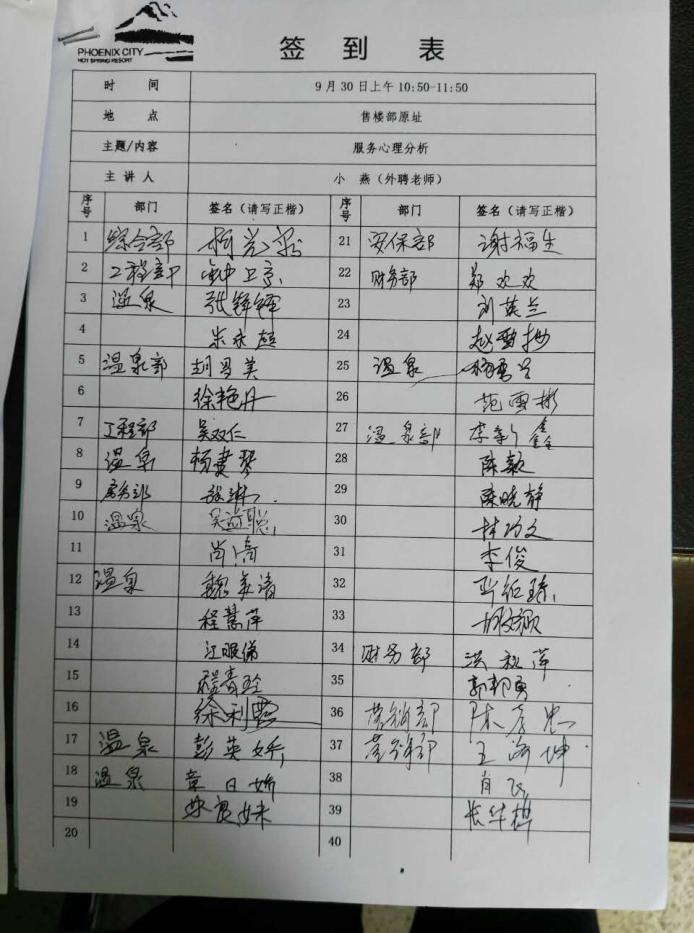 PHOENIX CITY
HOT SPRING RESORT
签 到 表
时 间 9月30日上午10:50-11:50
地 点 售楼部原址
主题/内容 服务心理分析
主 讲 人 小 燕（外聘老师）
序号 部门 签名（请写正楷） 序号 部门 签名（请写正楷）
1 综合部 21 安保部 谢福生
2 工程部 钟卫京 22 财务部 郑欢欢
3 温泉 23 刘英兰
4 朱永超 24
5 温泉部 胡美 25 温泉
6 徐艳丹 26 范雪彬
7 工程部 吴双仁 27 温泉部 李新鑫
8 温泉 杨 琴 28 陈款
9 房务部 29 陈晓静
10 温泉 吴益聪 30 林巧文
11 尚涛 31 李俊
12 温泉 魏美清 32
13 程慧萍 33
14 江眼俤 34 财务部 洪秋萍
15 35 郭郭勇
16 徐利霞 36 营销部 陈孝忠
17 温泉 彭英娇 37 营销部 王海坤
18 温泉 章日娇 38 肖飞
19 39 张华桦
20 40